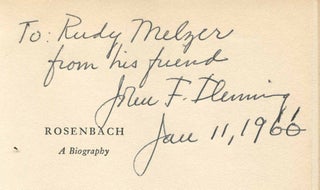 To: Rudy Melzer
from his friend
John F. Fleming
Jan 11, 1966
ROSENBACH
A Biography